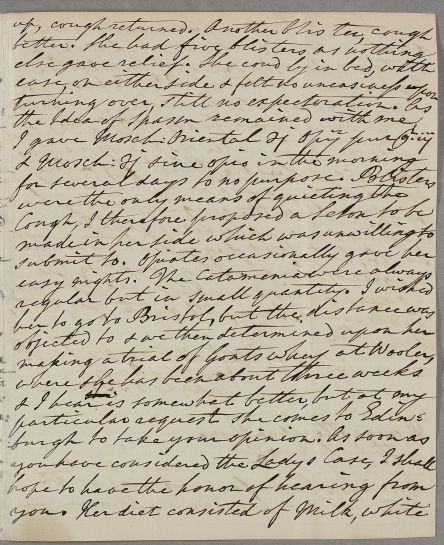 up, cough returned. Another blister, cough
better. She had five blisters as nothing
else gave relief. She coud ly in bed, with
ease, on either side & felt no uneasiness upon
turning over, still no expectoration. As
the Idea of Spasm remained with me
I gave Mosch: Oriental ʒj Opij pur
& Mosch: ʒj sine opio in the morning
for several days to no purpose. Blisters
were the only means of quieting the
Cough, I therefore proposed a Seton to be
made in her side which was unwilling to
submit to. Opiates occasionally gave her
easy nights. The Catamenia were always
regular but in small quantity. I wished
her to go to Bristol, but the distance was
objected to & we then determined upon her
making a trial of Goats whey at Wooler,
where she has been about three weeks
& I hear is somewhat better, but at my
particular request she comes to Edin=
burgh to take your opinion. As soon as
you have considered the Lady's Case, I shall
hope to have the honor of hearing from
you. Her diet consisted of Milk, white